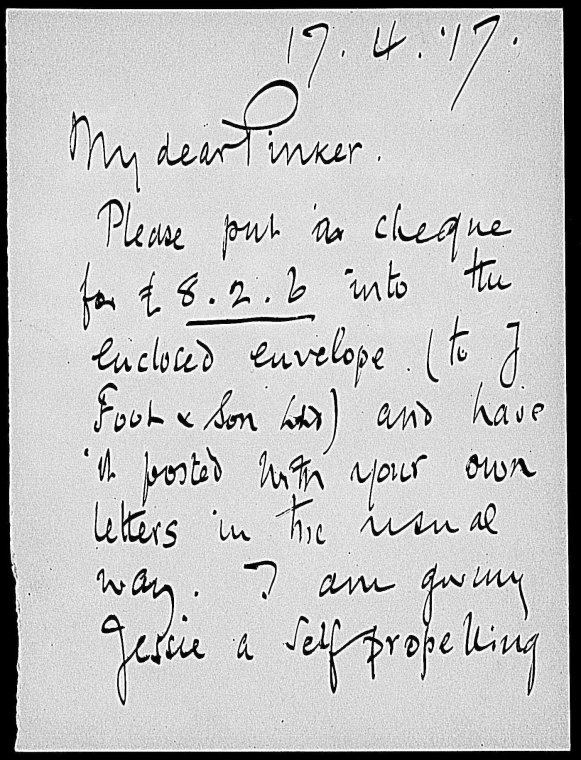 17. 4. '17.
My dear Pinker.
Please put a cheque
for £ 8.2.6 into the
enclosed envelope (to J
Foot & Son Ltd) and have
it posted with your own
letters in the usual
way. I am giving
Jessie a self propelling